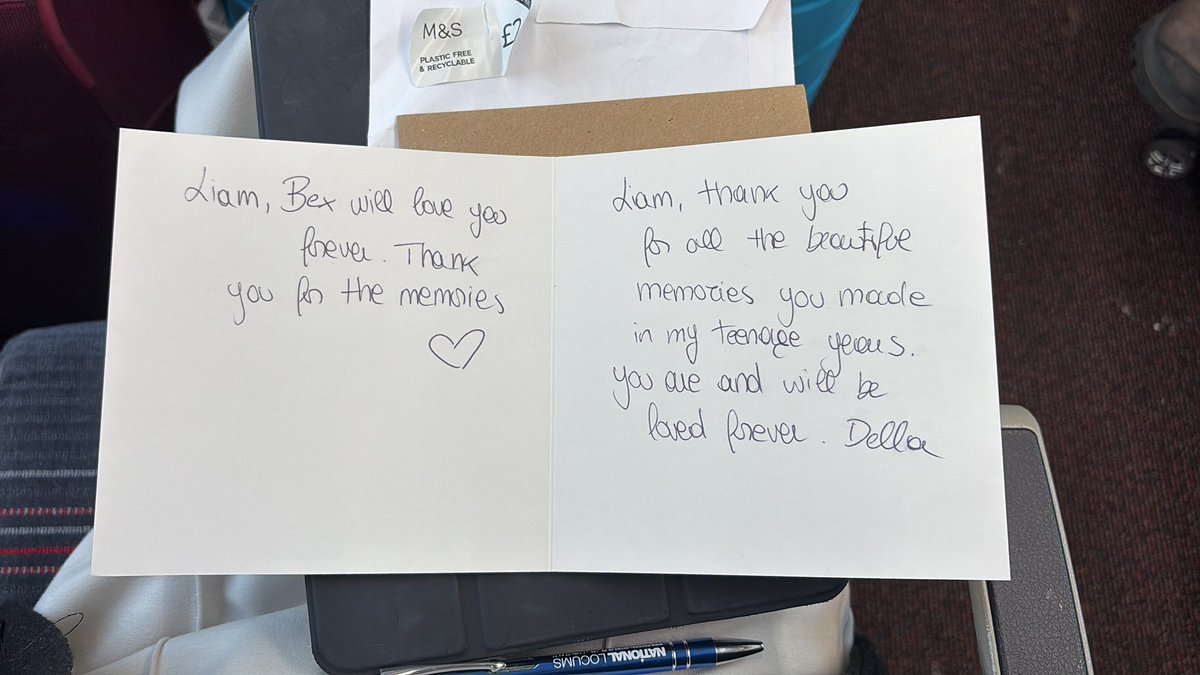 M&S
£2
PLASTIC FREE
& RECYCLABLE
Liam, Bex will love you
forever. Thank
you for the memories
Liam, thank you
for all the beautiful
memories you made
in my teenage years.
you are and will be
loved forever. Della
NATIONAL LOCUMS